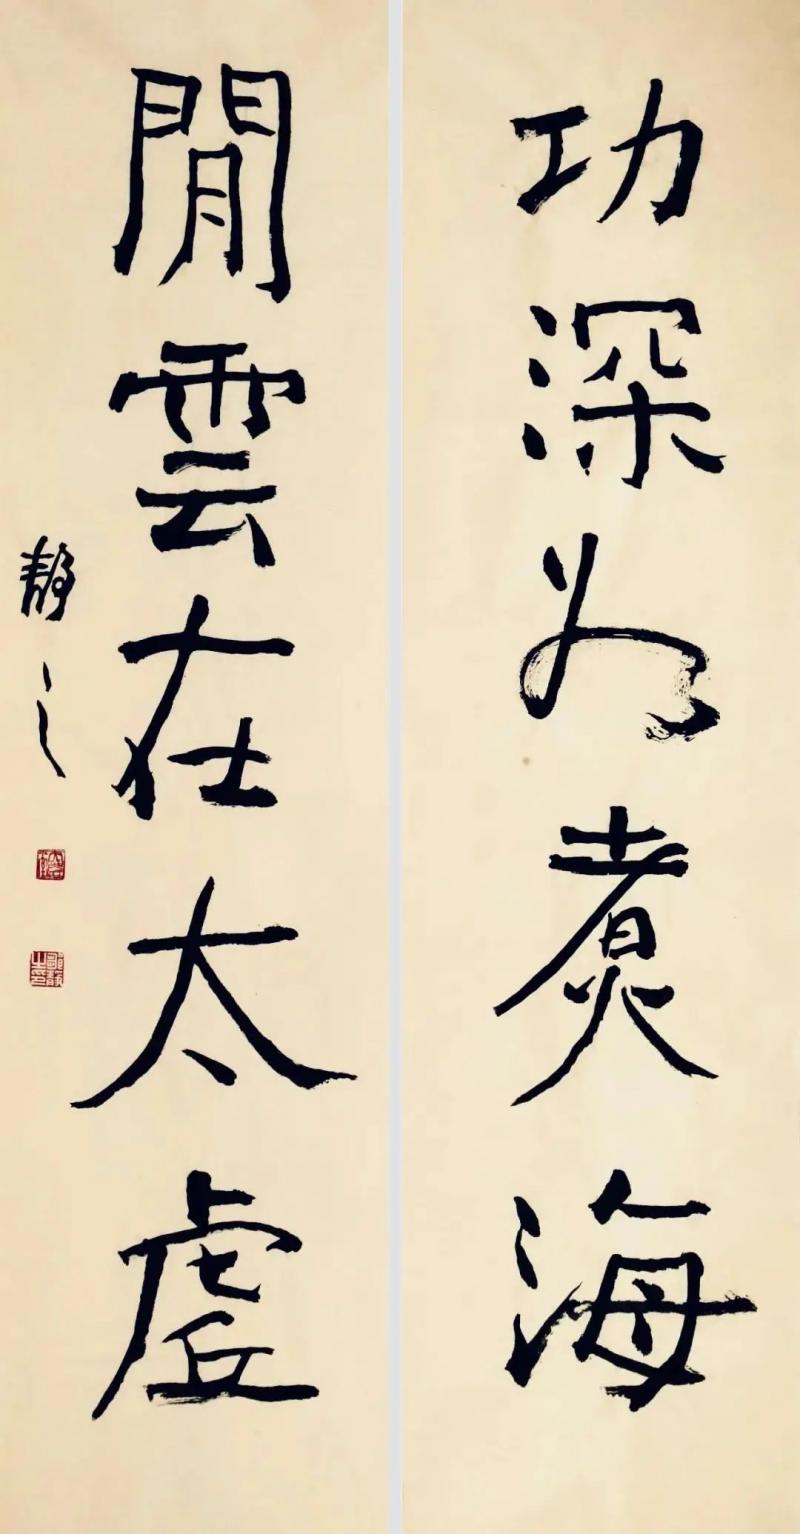 功深如煮海
閒雲在太虛
靜之